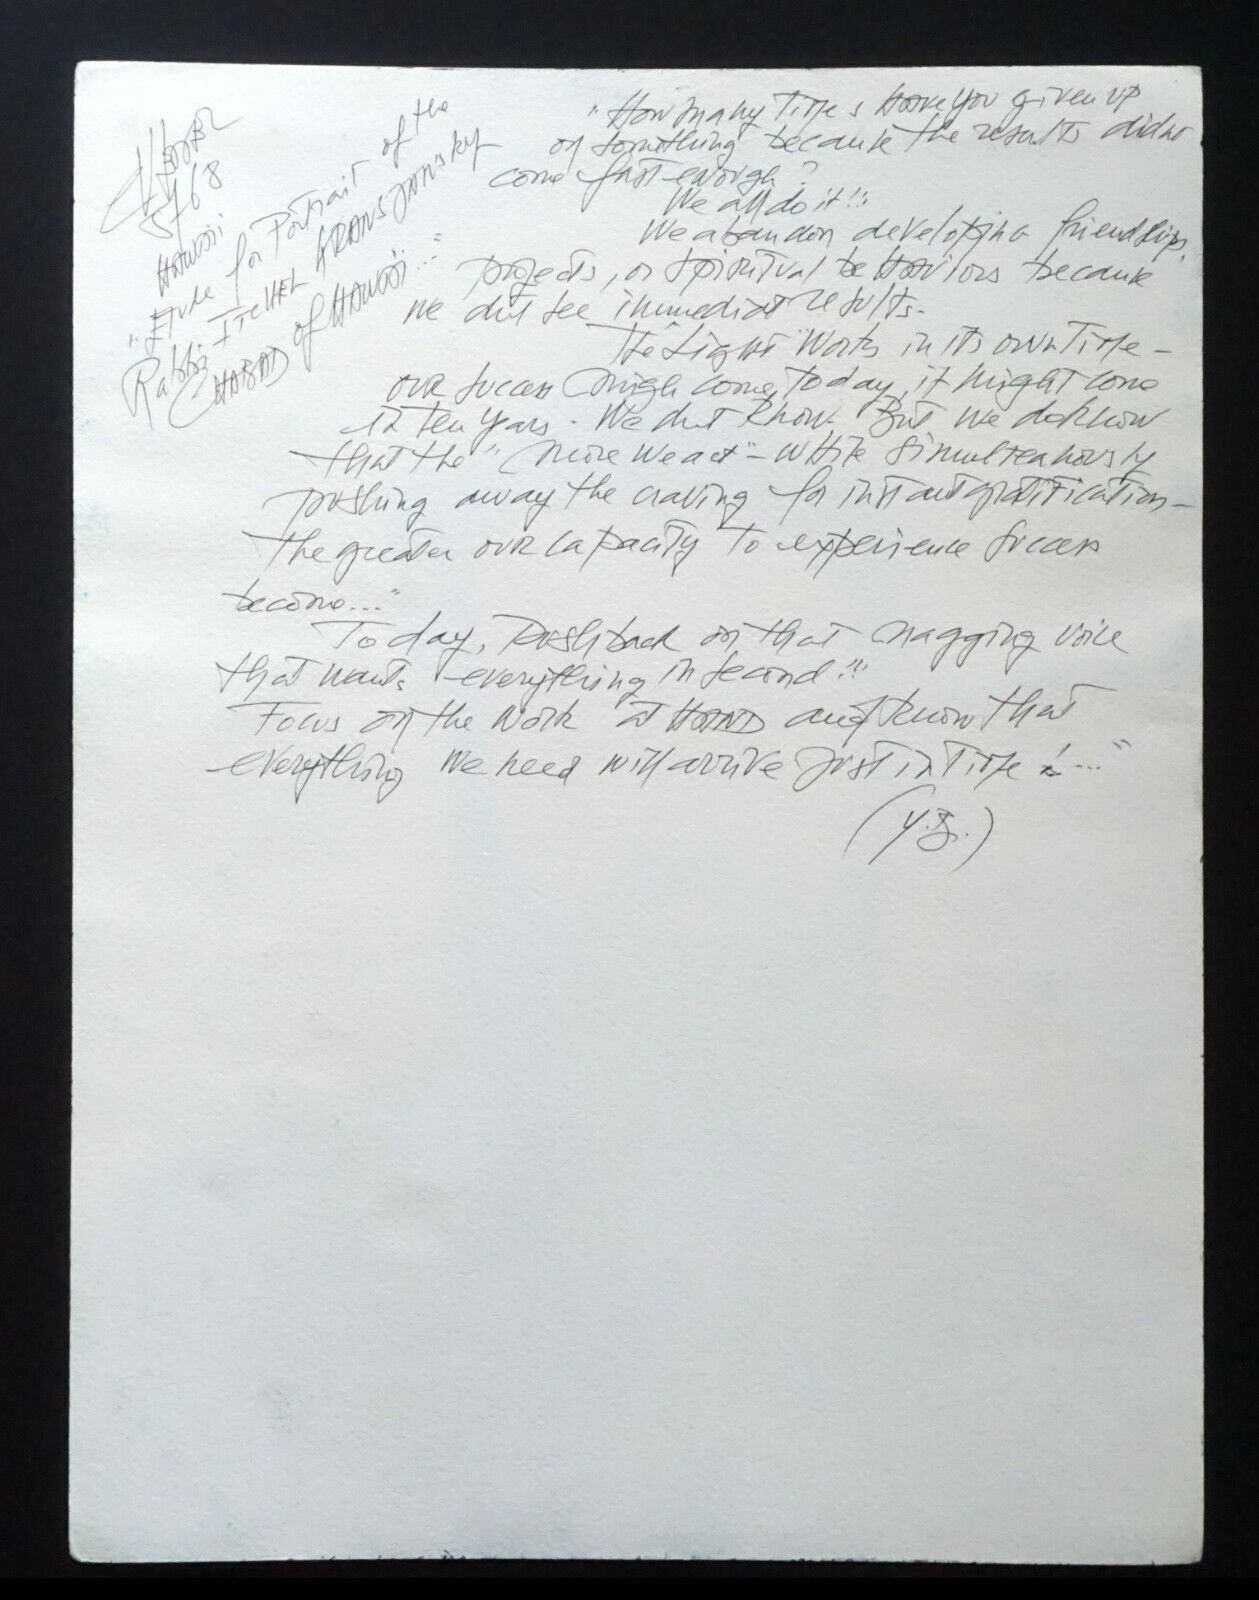 5768
HAWAII
"Etude for Portrait of the
Rabbi ITCHEL KRASNJANSKY
CHABAD of HAWAII..."
"How many Times Have you given up
on something because the results didnt
come fast enough?
We all do it!!
We abandon developing friendships,
projects, or spiritual behaviors because
we dnt see immediat results.
The Light Works in its own Time -
our success migh come today, it might come
in Ten years. We dnt know. But we do know
that the "more we act" - while simulteanously
pushing away the craving for instant gratification -
the greater our capacity to experience success
become..."
Today, Push back on that nagging voice
that wants everything in second!!
Focus on the work at HAND and know that
everything we need will arrive just in Time !..."
(Y.B.)